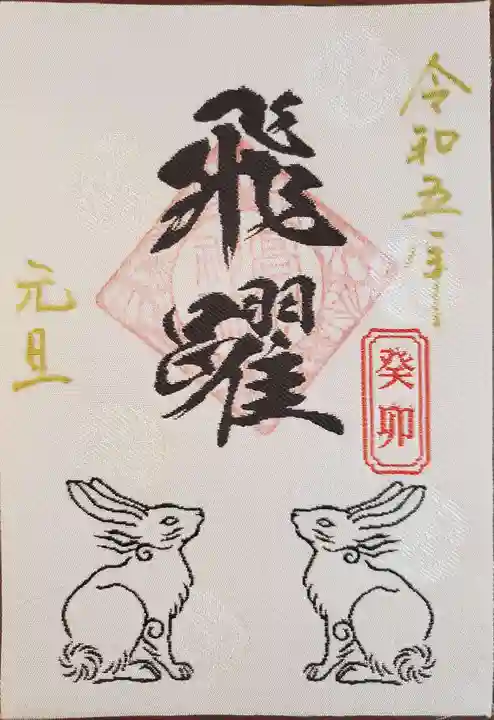 令和五年
飛躍
癸卯
元旦